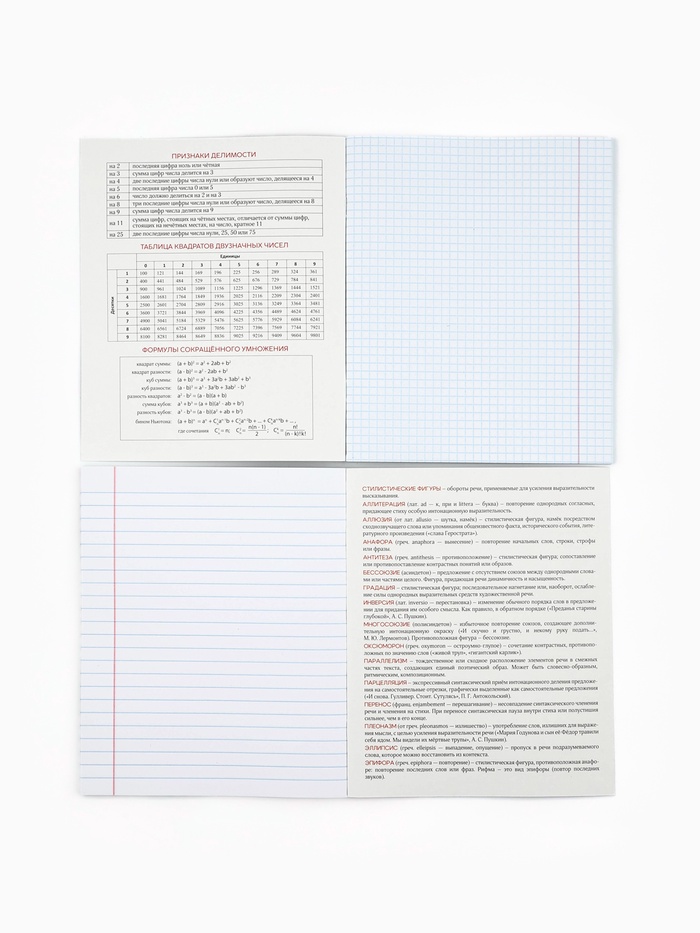 ПРИЗНАКИ ДЕЛИМОСТИ
на 2 последняя цифра ноль или чётная
на 3 сумма цифр числа делится на 3
на 4 две последние цифры числа нули или образуют число, делящееся на 4
на 5 последняя цифра числа 0 или 5
на 6 число должно делиться на 2 и на 3
на 8 три последние цифры числа нули или образуют число, делящееся на 8
на 9 сумма цифр числа делится на 9
на 11 сумма цифр, стоящих на чётных местах, отличается от суммы цифр,
стоящих на нечётных местах, на число, кратное 11
на 25 две последние цифры числа нули, 25, 50 или 75
ТАБЛИЦА КВАДРАТОВ ДВУЗНАЧНЫХ ЧИСЕЛ
Единицы
0 1 2 3 4 5 6 7 8 9
Десятки
1 100 121 144 169 196 225 256 289 324 361
2 400 441 484 529 576 625 676 729 784 841
3 900 961 1024 1089 1156 1225 1296 1369 1444 1521
4 1600 1681 1764 1849 1936 2025 2116 2209 2304 2401
5 2500 2601 2704 2809 2916 3025 3136 3249 3364 3481
6 3600 3721 3844 3969 4096 4225 4356 4489 4624 4761
7 4900 5041 5184 5329 5476 5625 5776 5929 6084 6241
8 6400 6561 6724 6889 7056 7225 7396 7569 7744 7921
9 8100 8281 8464 8649 8836 9025 9216 9409 9604 9801
ФОРМУЛЫ СОКРАЩЁННОГО УМНОЖЕНИЯ
квадрат суммы: (a + b)² = a² + 2ab + b²
квадрат разности: (a - b)² = a² - 2ab + b²
куб суммы: (a + b)³ = a³ + 3a²b + 3ab² + b³
куб разности: (a - b)³ = a³ - 3a²b + 3ab² - b³
разность квадратов: a² - b² = (a - b)(a + b)
сумма кубов: a³ + b³ = (a + b)(a² - ab + b²)
разность кубов: a³ - b³ = (a - b)(a² + ab + b²)
бином Ньютона: (a + b)ⁿ = aⁿ + C
где сочетания
СТИЛИСТИЧЕСКИЕ ФИГУРЫ – обороты речи, применяемые для усиления выразительности
высказывания.
АЛЛИТЕРАЦИЯ (лат. ad — к, при и littera — буква) – повторение однородных согласных,
придающее стиху особую интонационную выразительность.
АЛЛЮЗИЯ (от лат. allusio — шутка, намёк) – стилистическая фигура, намёк посредством
сходнозвучащего слова или упоминания общеизвестного факта, исторического события, лите-
ратурного произведения («слава Герострата»).
АНАФОРА (греч. anaphora — вынесение) – повторение начальных слов, строки, строфы
или фразы.
АНТИТЕЗА (греч. antithesis — противоположение) – стилистическая фигура; сопоставление
или противопоставление контрастных понятий или образов.
БЕССОЮЗИЕ (асиндетон) – предложение с отсутствием союзов между однородными слова-
ми или частями целого. Фигура, придающая речи динамичность и насыщенность.
ГРАДАЦИЯ – стилистическая фигура; последовательное нагнетание или, наоборот, ослабле-
ние силы однородных выразительных средств художественной речи.
ИНВЕРСИЯ (лат. inversio — перестановка) – изменение обычного порядка слов в предложе-
нии для придания им особого смысла. Как правило, в обратном порядке («Преданья старины
глубокой», А. С. Пушкин).
МНОГОСОЮЗИЕ (полисиндетон) – избыточное повторение союзов, создающее дополни-
тельную интонационную окраску («И скучно и грустно, и некому руку подать…»,
М. Ю. Лермонтов). Противоположная фигура – бессоюзие.
ОКСЮМОРОН (греч. oxymoron — остроумно-глупое) – сочетание контрастных, противопо-
ложных по значению слов («живой труп», «гигантский карлик»).
ПАРАЛЛЕЛИЗМ – тождественное или сходное расположение элементов речи в смежных
частях текста, создающее единый поэтический образ. Может быть словесно-образным,
ритмическим, композиционным.
ПАРЦЕЛЛЯЦИЯ – экспрессивный синтаксический приём интонационного деления предложе-
ния на самостоятельные отрезки, графически выделенные как самостоятельные предложения
(«И снова. Гулливер. Стоит. Сутулясь», П. Г. Антокольский).
ПЕРЕНОС (франц. enjambement — перешагивание) – несовпадение синтаксического членения
речи и членения на стихи. При переносе синтаксическая пауза внутри стиха или полустишия
сильнее, чем в его конце.
ПЛЕОНАЗМ (от греч. pleonasmos — излишество) – употребление слов, излишних для выраже-
ния мысли, с целью усиления выразительности («Мария Годунова и сын её Фёдор травили
себя ядом. Мы видели их мёртвые трупы», А. С. Пушкин).
ЭЛЛИПСИС (греч. elleipsis — выпадение, опущение) – пропуск в речи подразумеваемого
слова, которое можно восстановить из контекста.
ЭПИФОРА (греч. epiphora — повторение) – стилистическая фигура, противоположная анафо-
ре: повторение последних слов или фраз. Рифма — это вид эпифоры (повтор последних
звуков).